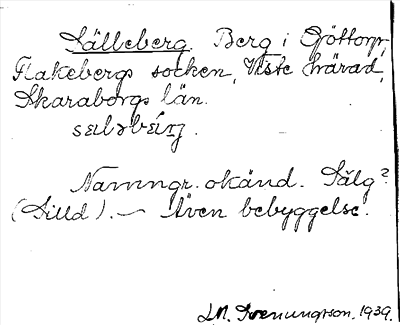 Sälleberg. Berg i Sjöttorp,
Flakebergs socken, Viste härad,
Skaraborgs län.
Namngr. okänd. Sälg?
(Silld). — Även bebyggelse.
1939.